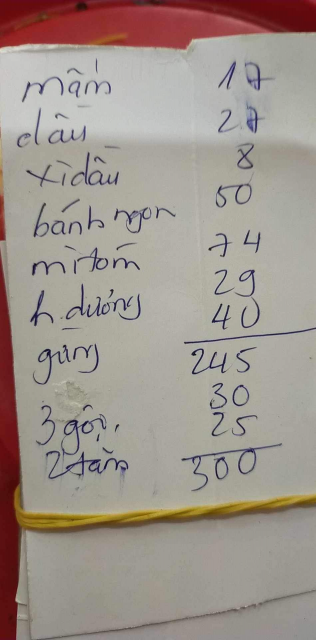 mắm 17
dầu 27
xì dầu 8
bánh ngon 50
mì tôm 74
h. dương 29
gừng 40
245
3 gội. 30
2 tắm 25
300